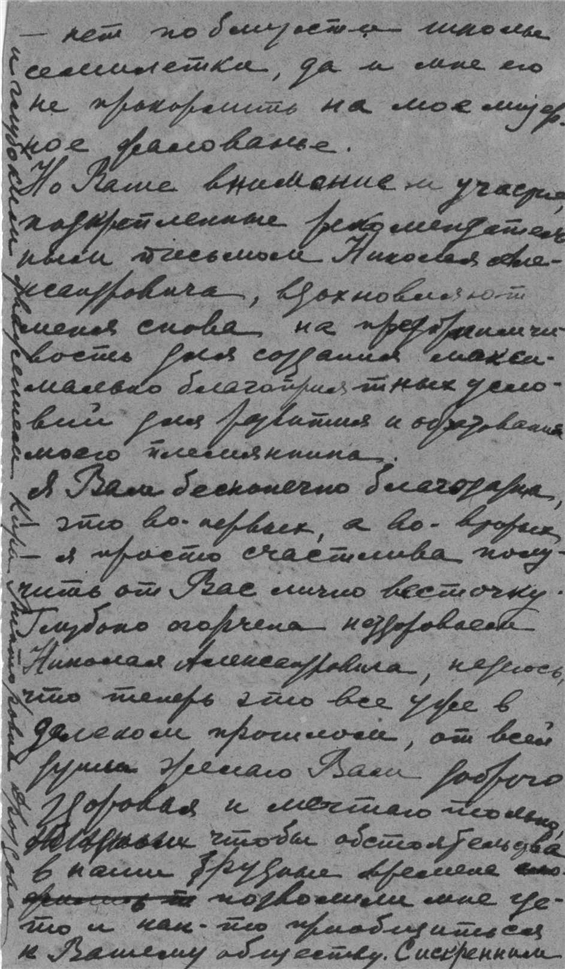 — нет поблизости школы
семилетки, да и мне его
не прокормить на мое мизер-
ное жалованье.
Но Ваше внимание и участие,
подкрепленные рекомендатель
ным письмом Николая Але-
ксандровича, вдохновляют
меня снова на предприимчи
вость для создания макси-
мально благоприятных усло-
вий для развития и образования
моего племянника.
Я Вам бесконечно благодарна,
— это во-первых, а во-вторых,
— я просто счастлива полу-
чить от Вас лично весточку.
Глубоко огорчена нездоровьем
Николая Александровича, надеюсь,
что теперь это все уже в
далеком прошлом, от всей
души желаю Вам доброго
здоровья и мечтаю только,
чтобы обстоятельства
в наши трудные времена
позволили мне где-
то и как-то приобщиться
к Вашему обществу. С искренним
и глубоким уважением